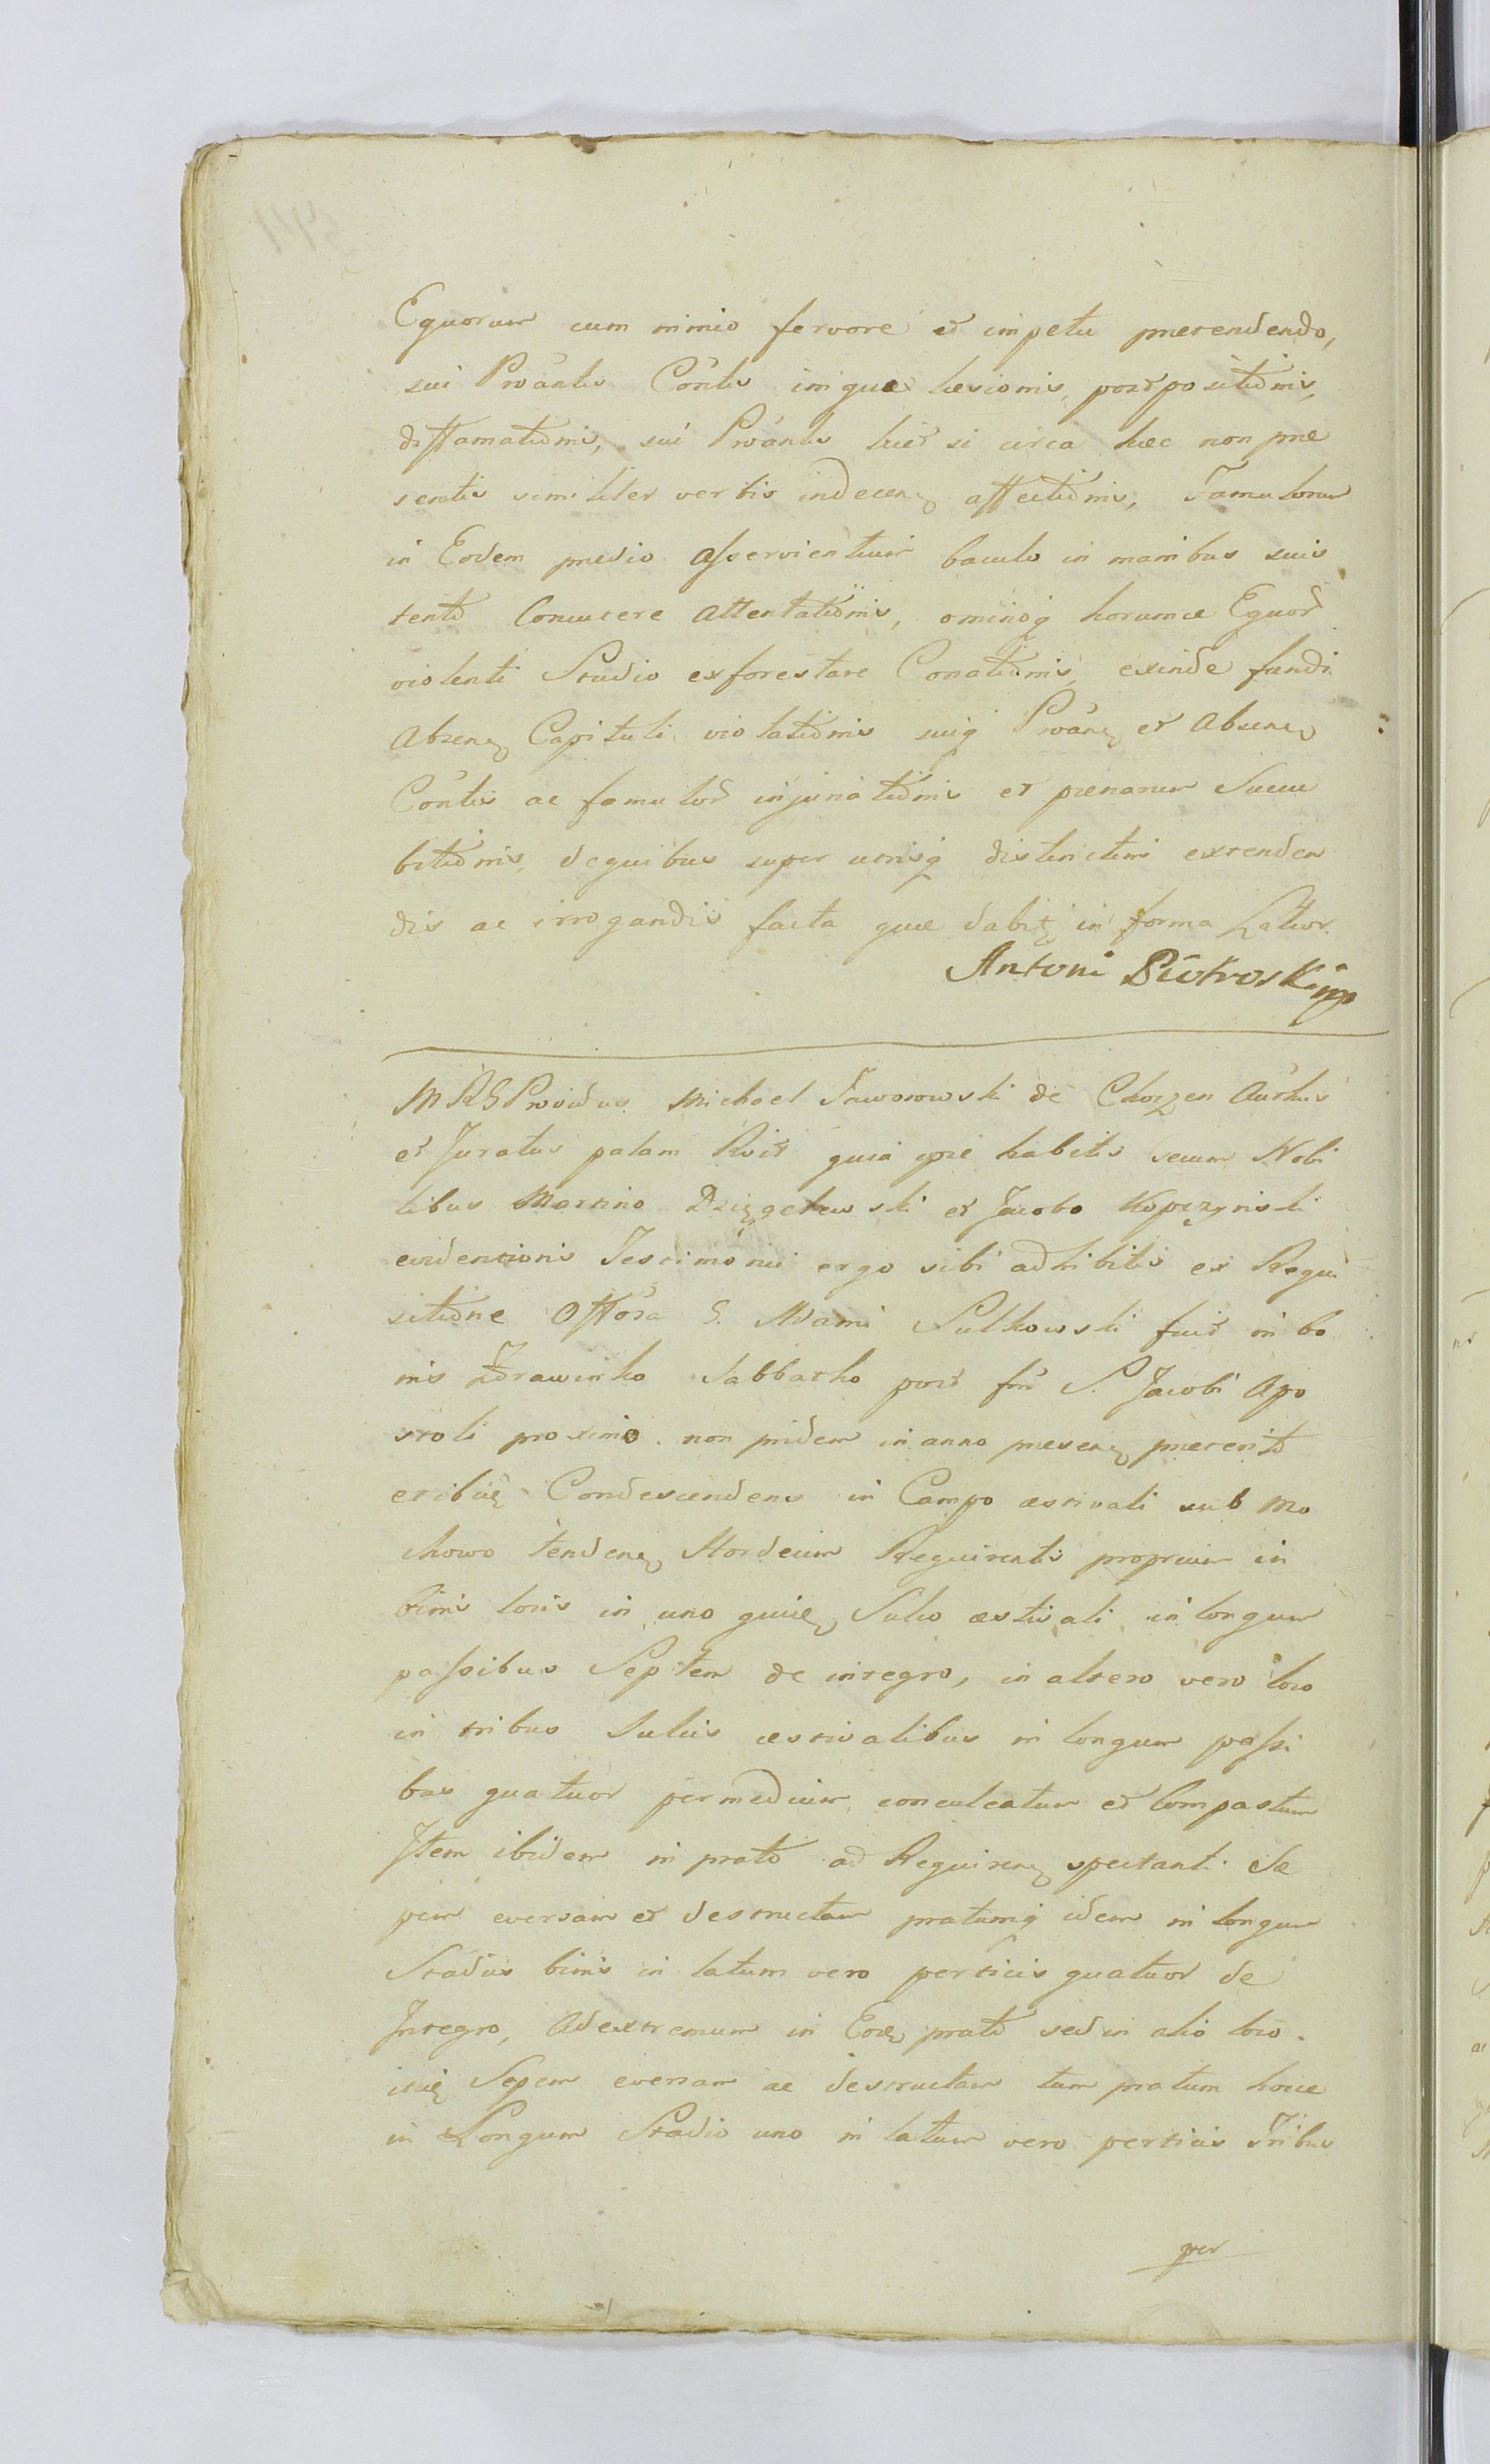 Equorum cum nimio fervore et impetu prætendendo,
sui Proântis Côntis iniquæ læsionis, postpositiõnis,
diffamatiõnis, sui Proântis licet si circa hæc non præ
sentis similiter verbis indecen affectiõnis, Famulorum
in Eodem prædio aſservientium baculo in manibus suis
tento Concutere Attentatiõnis, ominoq horumce Equor
violenti Studio exforestare Conatiõnis, exinde fundi
Absen Capituli violatiõnis suiq Proân et Absen
Côntis ac famulor injuriatiõnis et pænarum Succu
bitiõnis, de quibus super umisq distinctim extenden
dis ac irrogandis facta quæ dabit in forma Latior.
Antoni Piotroski mp
MRG Providus Michael Jaworowski de Choczen Aûrtus
et Juratus palam Rcit quia ipse habitis secum Nobi
libus Martino Dzięgelewski et Jacobo Kopczynski
evidentioris Testimonii ergo sibi adhibitis ex Requi
sitiõne Offôsa G. Adami Sulkowski fuit in bo
nis Zdrawinko Sabbatho post fm S. Jacobi Apo
stoli proximo non pridem in anno præsen præterito
eribiq Condescendens in Campo æstivali sub Mo
chowo tenden Hordeum Requirentis proprium in
binis locis in uno quiq Sulco æstivali in longum
paſsibus Septem de integro, in altero vero loco
in tribus Sulcis æstivalibus in longum paſsi
bus quatuor per medium conculcatum et Compastum
Item ibidem in prato ad Requiren spectanti Se
pem eversam et destructam pratumq idem in longum
Stadiis binis in latum vero perticis quatuor de
Integro, Adextremum in Eod prato sed in alio loco
itiq Sepem eversam ac destructam tum pratum hocce
in Longum Stadio uno in latum vero perticis Tribus
per